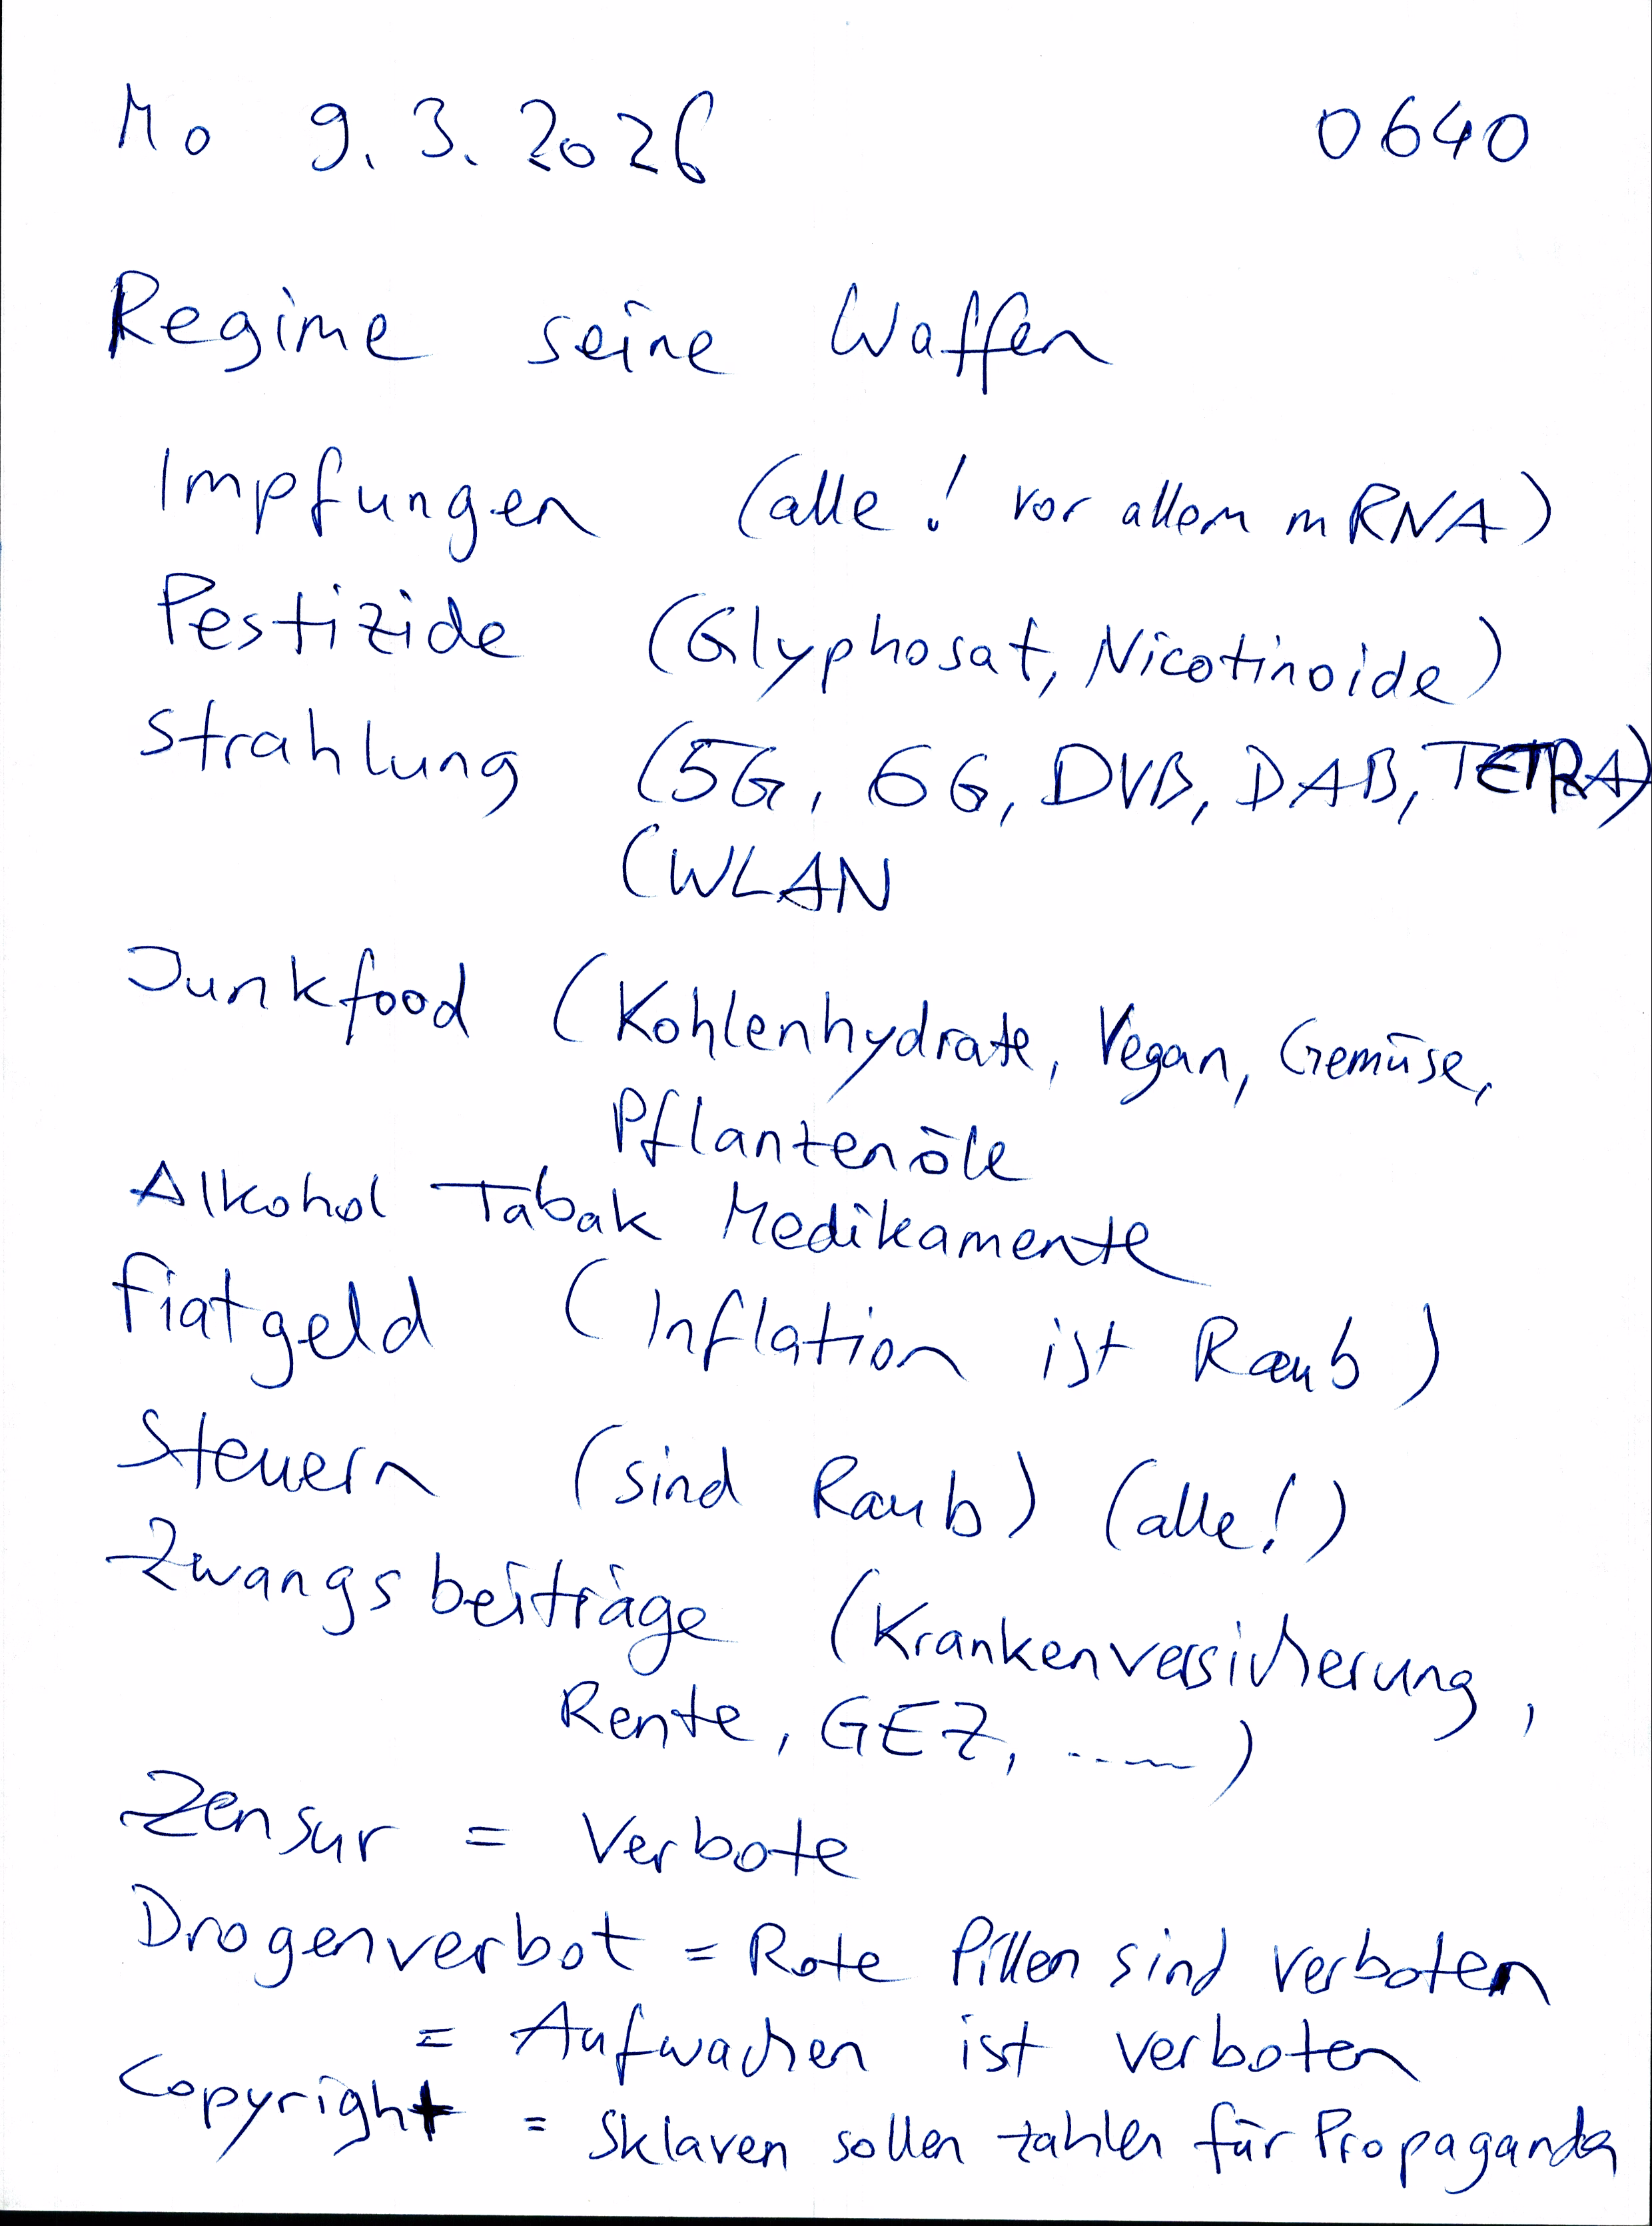 Mo 9.3.2026 0640
Regime seine Waffen
Impfungen (alle! vor allem mRNA)
Pestizide (Glyphosat, Nicotinoide)
Strahlung (5G, 6G, DVB, DAB, TETRA)
(WLAN
Junkfood (Kohlenhydrate, Vegan, Gemüse,
Pflanzenöle
Alkohol Tabak Medikamente
Fiatgeld (Inflation ist Raub)
Steuern (sind Raub) (alle!)
Zwangsbeiträge (Krankenversicherung,
Rente, GEZ, .....)
Zensur = Verbote
Drogenverbot = Rote Pillen sind verboten
= Aufwachen ist verboten
Copyright = Sklaven sollen zahlen für Propaganda